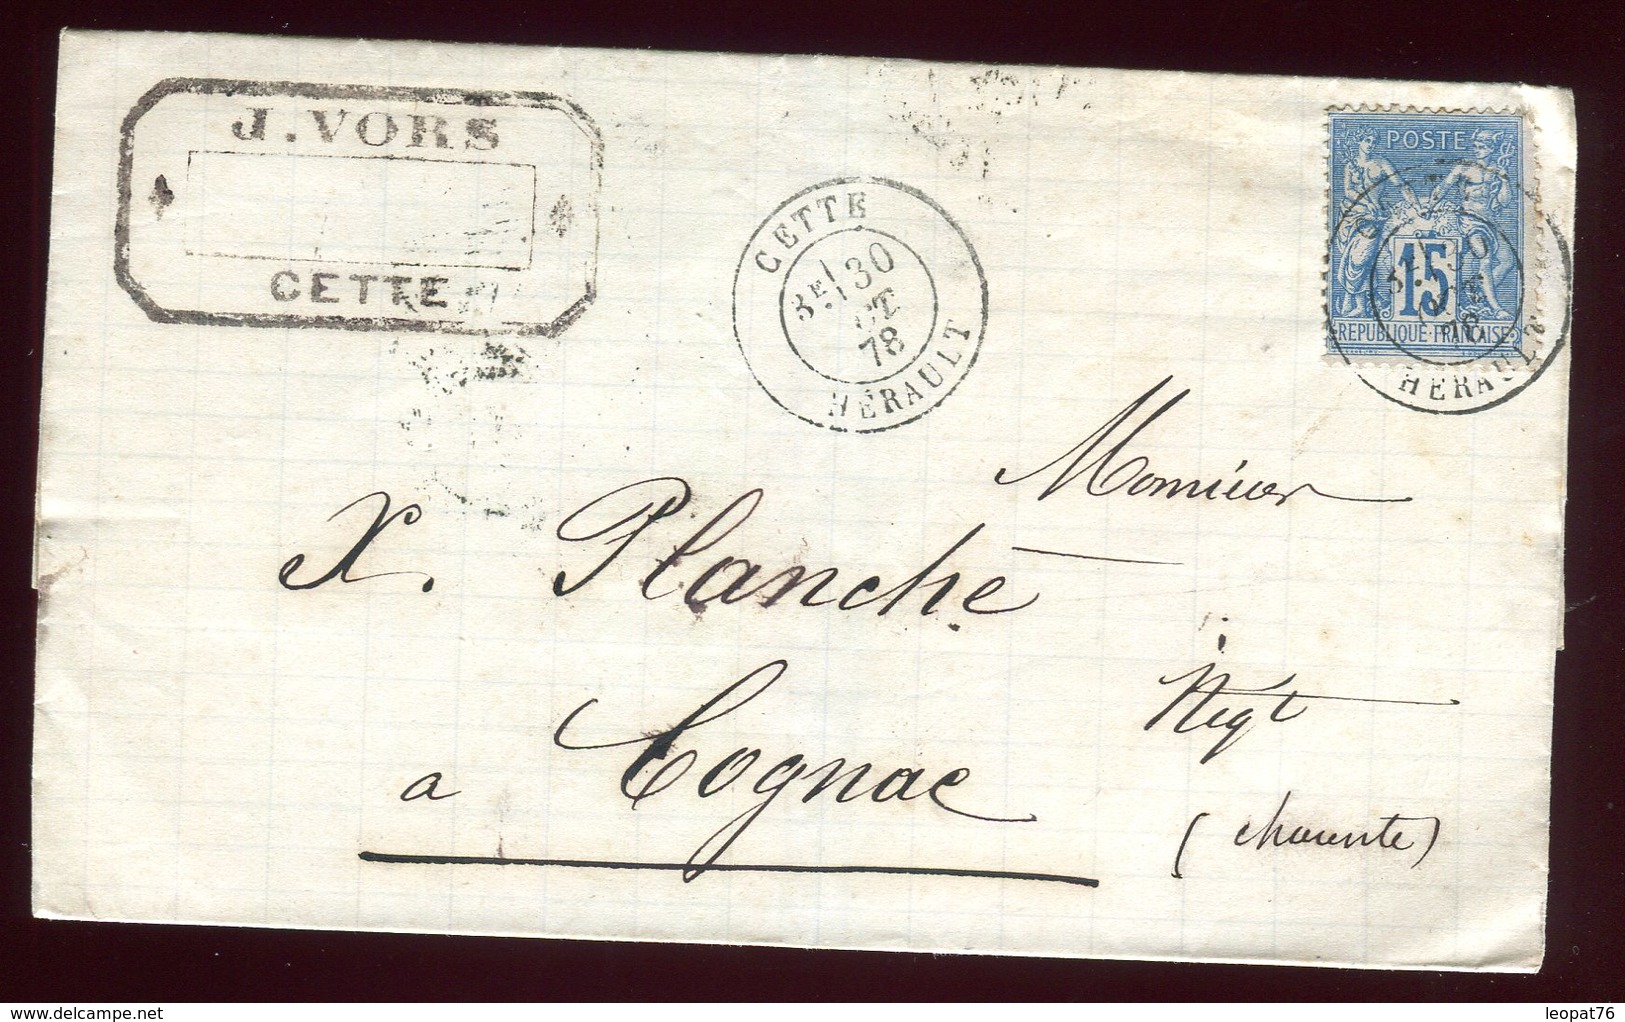 J. VORS
CETTE
CETTE
3E/
30
OCT
78
HÉRAULT
POSTE
15
REPUBLIQUE FRANÇAISE
30
78
HÉRAULT
Monsieur
X. Planche
Negt
a Cognac
(Charente)
leopat76